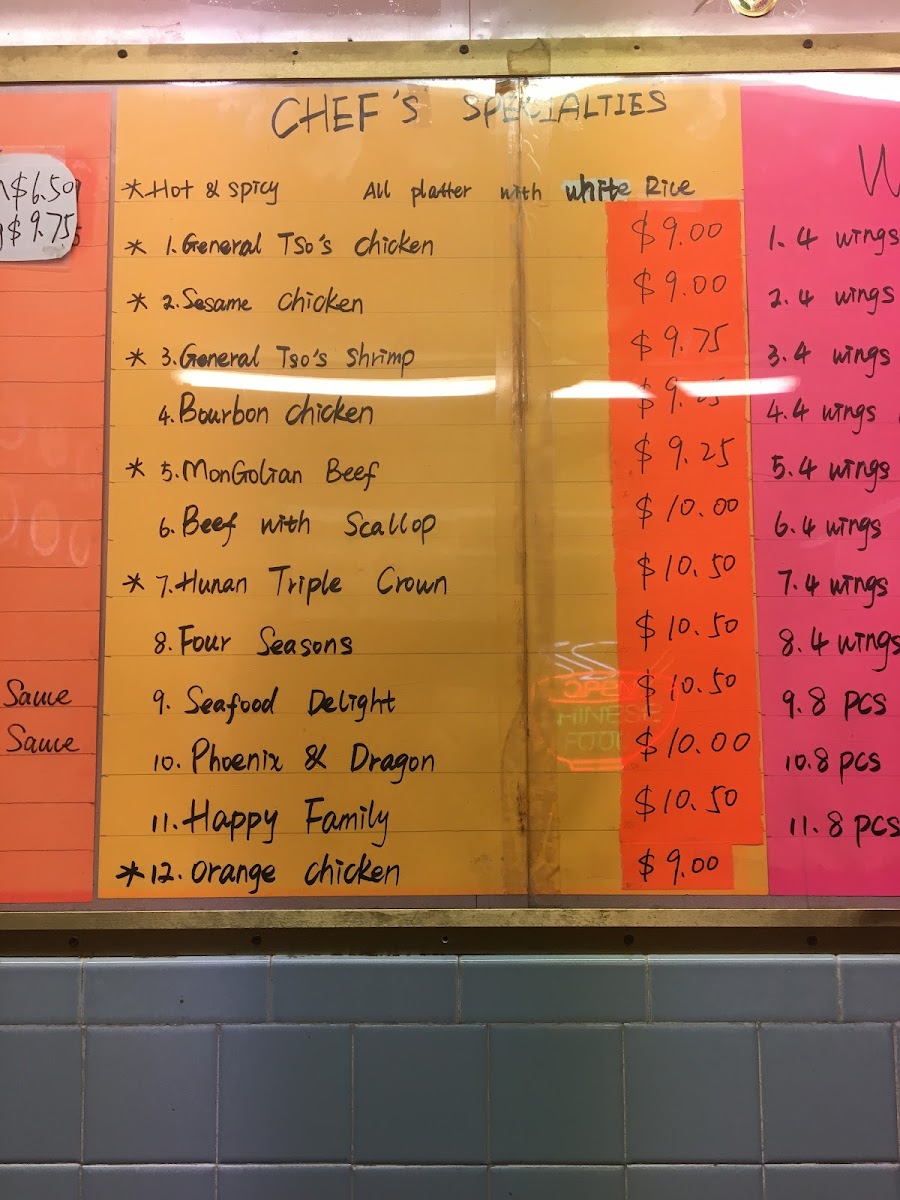 $6.50
$9.75
Sauce
Sauce
CHEF'S SPECIALTIES
*Hot & Spicy All platter with white Rice
* 1. General Tso's Chicken $9.00
* 2. Sesame Chicken $9.00
* 3. General Tso's Shrimp $9.75
4. Bourbon Chicken
* 5. MonGolian Beef $9.25
6. Beef with Scallop $10.00
* 7. Hunan Triple Crown $10.50
8. Four Seasons $10.50
9. Seafood Delight $10.50
10. Phoenix & Dragon $10.00
11. Happy Family $10.50
*12. Orange Chicken $9.00
OPEN
HINESE
FOOD
W
1. 4 wings
2. 4 wings
3. 4 wings
4. 4 wings
5. 4 wings
6. 4 wings
7. 4 wings
8. 4 wings
9. 8 pcs
10. 8 pcs
11. 8 pcs